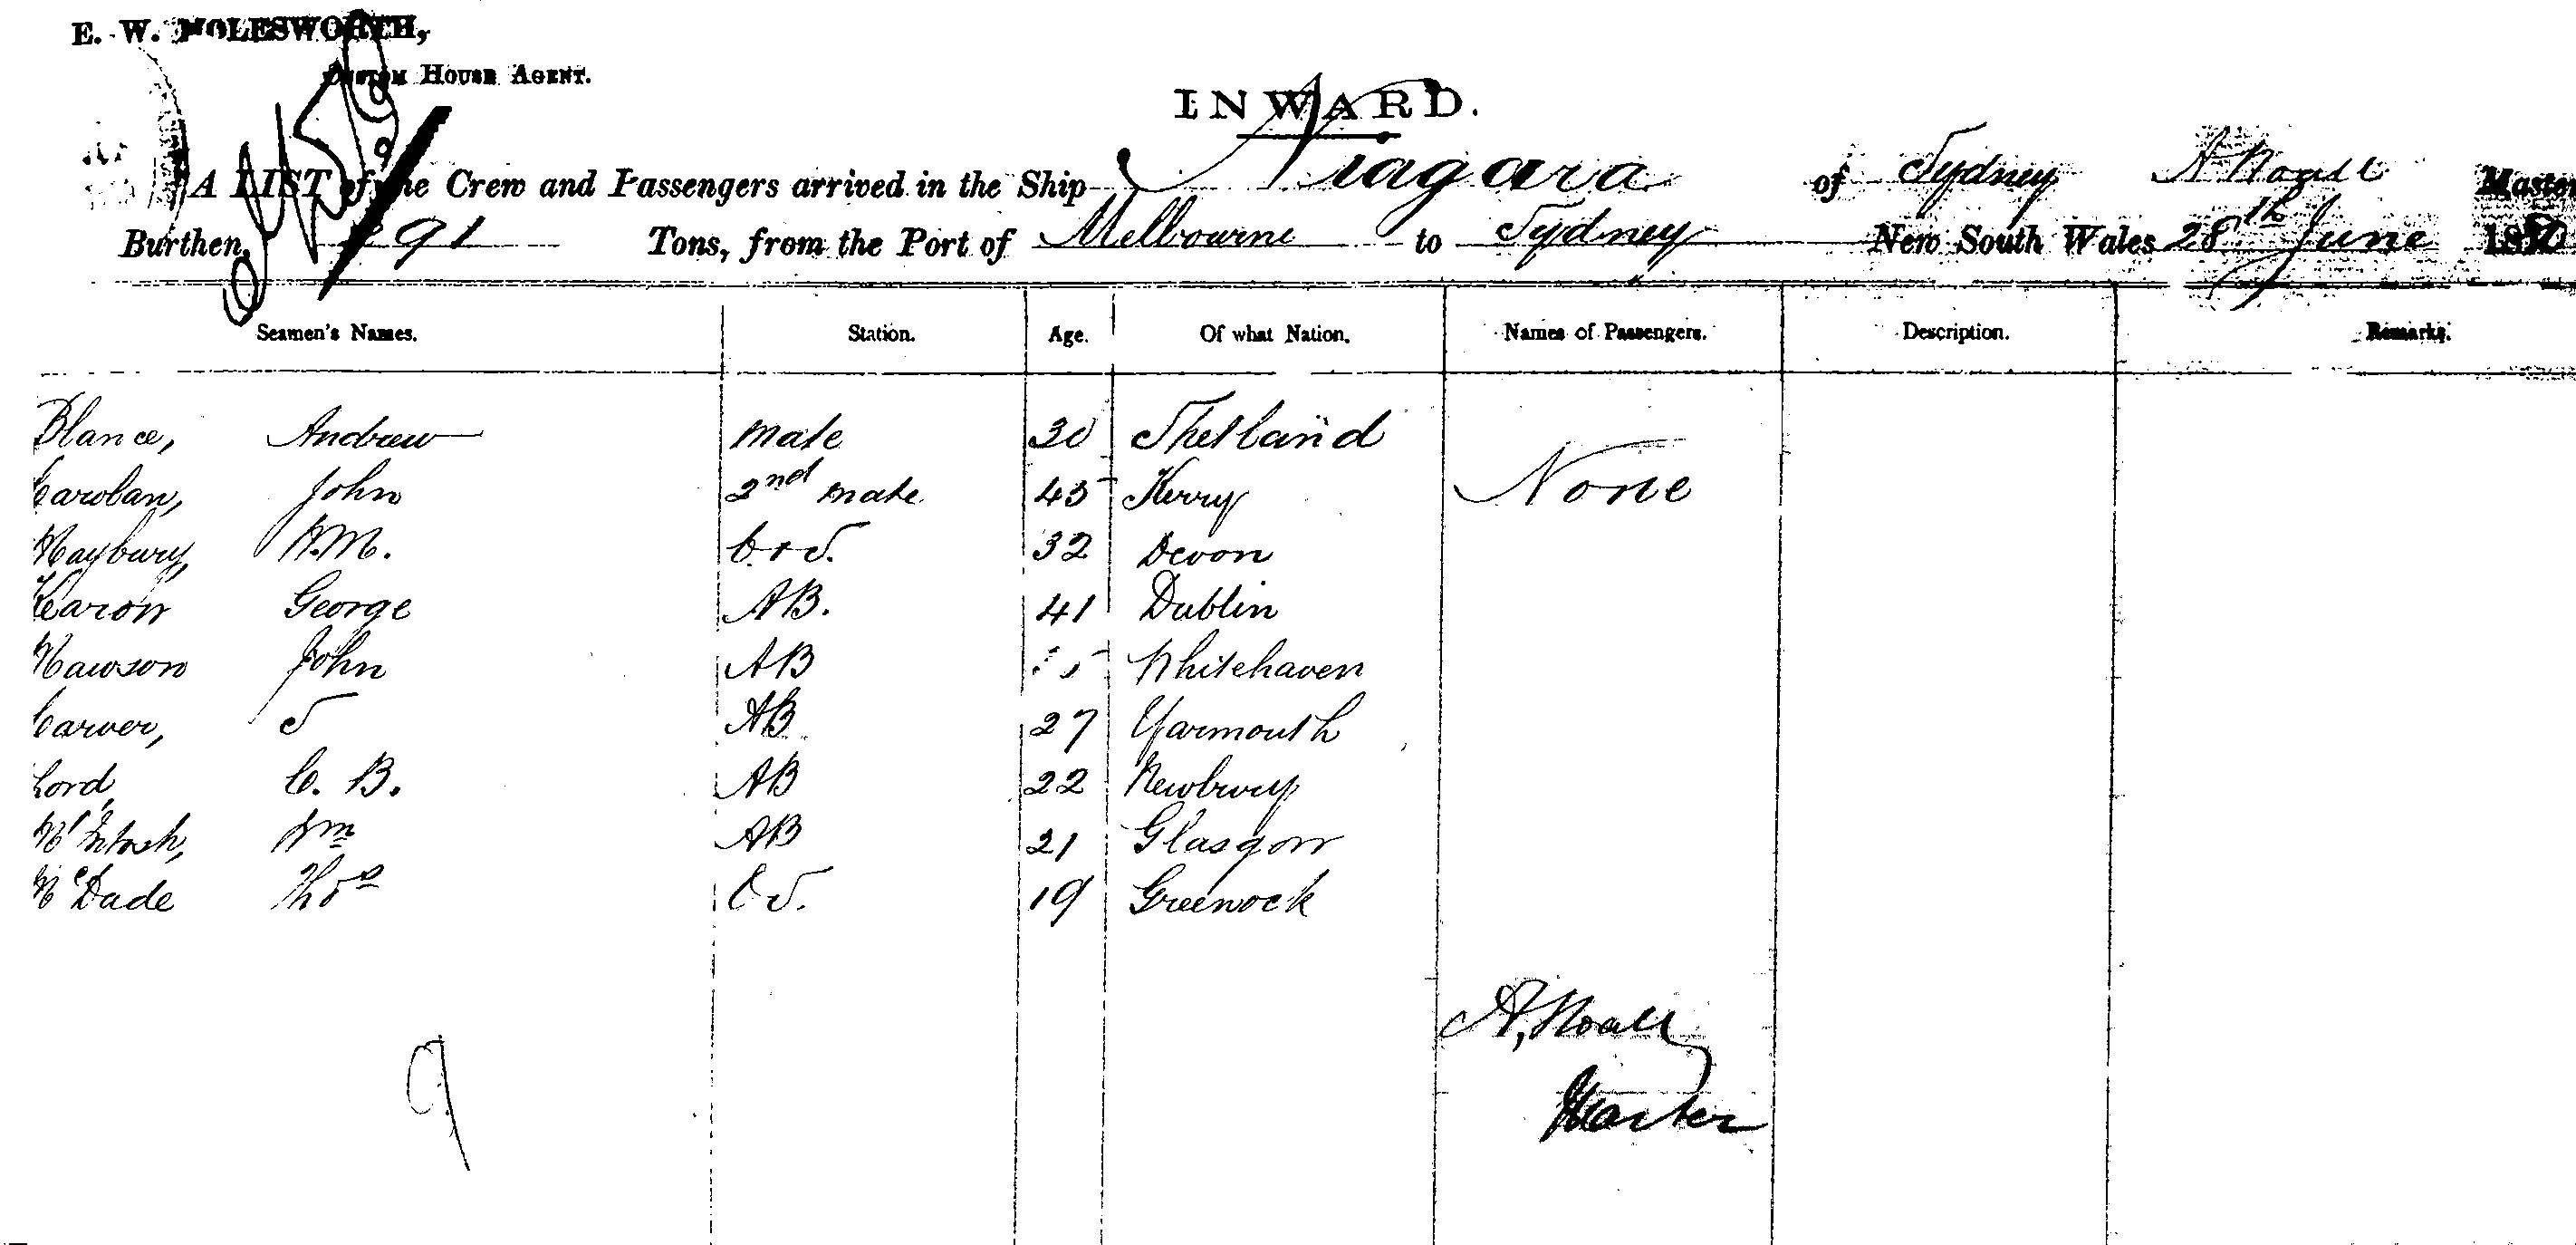 E. W. MOLESWORTH,
CUSTOM HOUSE AGENT.
INWARD.
A LIST of the Crew and Passengers arrived in the Ship Niagara of Sydney A Master
Burthen, Tons, from the Port of Melbourne to Sydney New South Wales 28th June
Seamen's Names. Station. Age. Of what Nation. Names of Passengers. Description. Remarks.
Blance, Andrew Mate 30 Shetland
Carolan, John 2nd Mate 45 Kerry None
Maybury, W.M. C+S. 32 Devon
Karon George AB. 41 Dublin
Hawson John AB Whitehaven
Carver, S AB 27 Yarmouth
Lord, C. B. AB 22 Newbury
McIntosh, Wm AB 21 Glasgow
McDade Thos OS. 19 Greenock
A,
9 Master